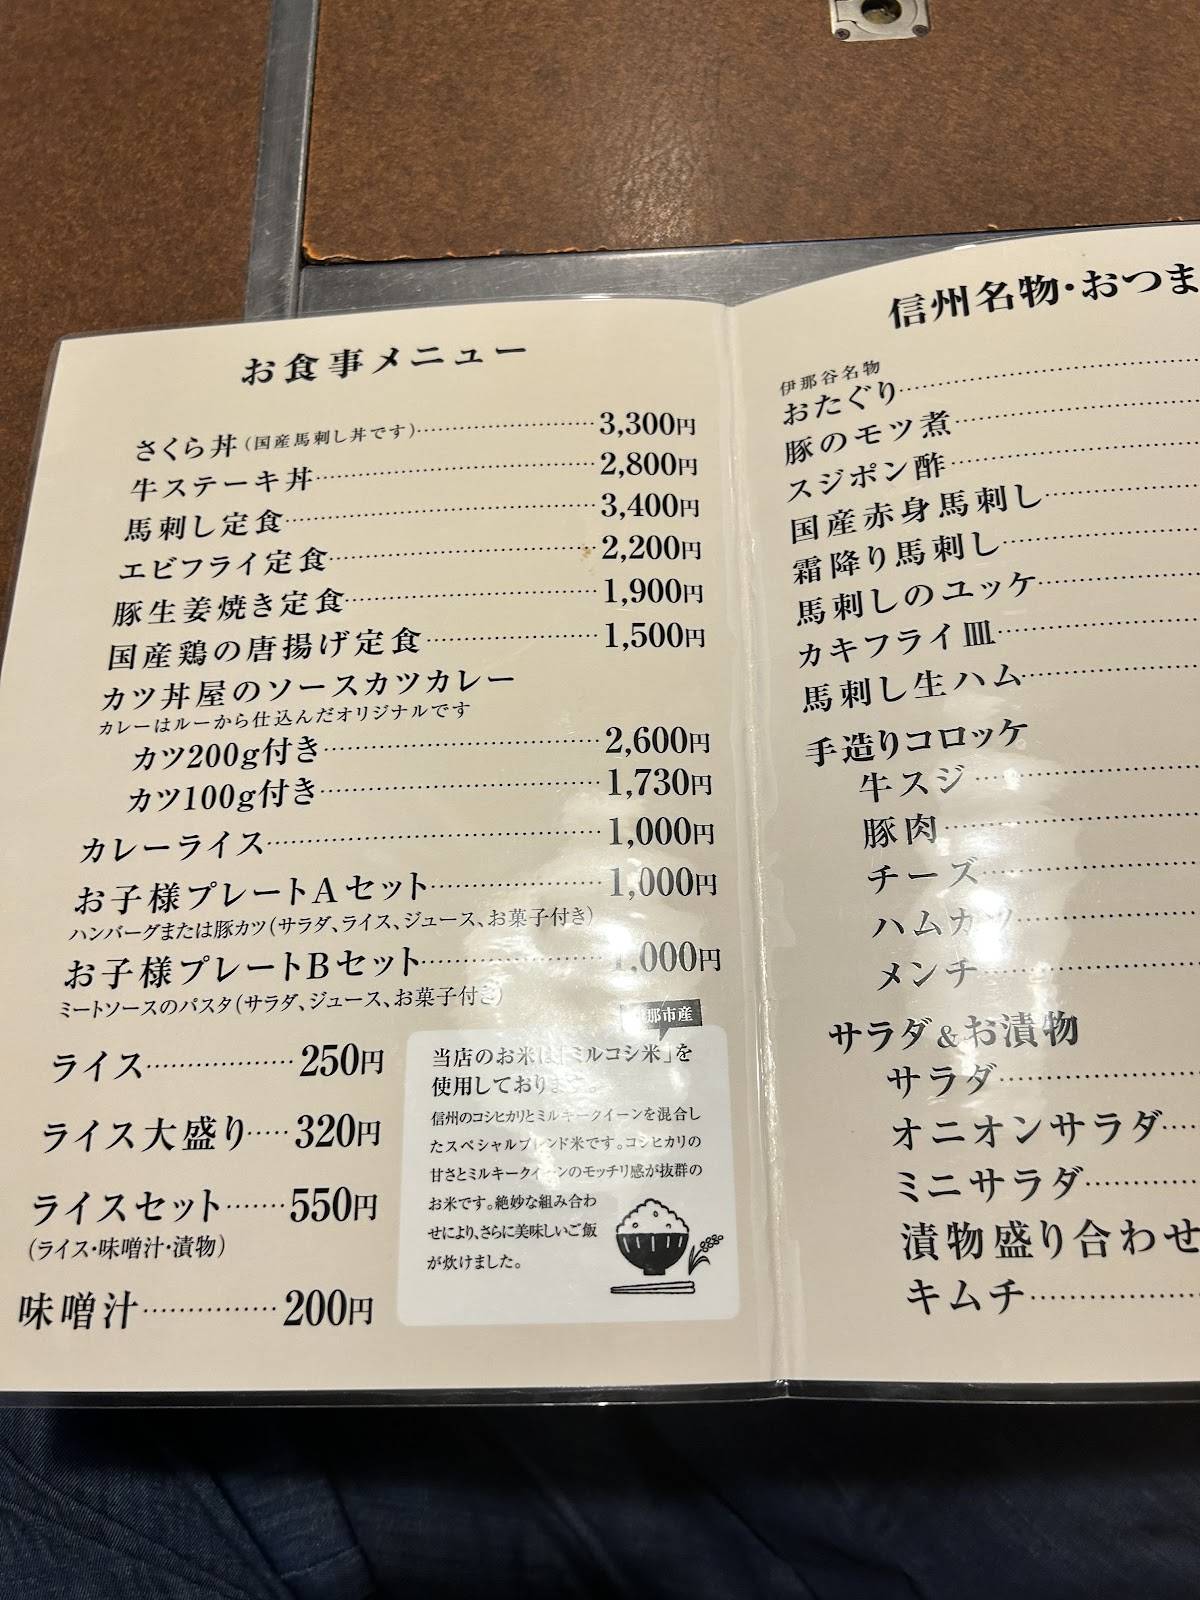 お食事メニュー
さくら丼(国産馬刺し丼です) 3,300円
牛ステーキ丼 2,800円
馬刺し定食 3,400円
エビフライ定食 2,200円
豚生姜焼き定食 1,900円
国産鶏の唐揚げ定食 1,500円
カツ丼屋のソースカツカレー
カレーはルーから仕込んだオリジナルです
カツ200g付き 2,600円
カツ100g付き 1,730円
カレーライス 1,000円
お子様プレートAセット 1,000円
ハンバーグまたは豚カツ(サラダ、ライス、ジュース、お菓子付き)
お子様プレートBセット 1,000円
ミートソースのパスタ(サラダ、ジュース、お菓子付き)
ライス 250円
ライス大盛り 320円
ライスセット 550円
(ライス・味噌汁・漬物)
味噌汁 200円
那市産
当店のお米は「ミルコシ米」を
使用しております。
信州のコシヒカリとミルキークイーンを混合し
たスペシャルブレンド米です。コシヒカリの
甘さとミルキークイーンのモッチリ感が抜群の
お米です。絶妙な組み合わ
せにより、さらに美味しいご飯
が炊けました。
信州名物・おつま
伊那谷名物
おたぐり
豚のモツ煮
スジポン酢
国産赤身馬刺し
霜降り馬刺し
馬刺しのユッケ
カキフライ皿
馬刺し生ハム
手造りコロッケ
牛スジ
豚肉
チーズ
ハムカツ
メンチ
サラダ&お漬物
サラダ
オニオンサラダ
ミニサラダ
漬物盛り合わせ
キムチ